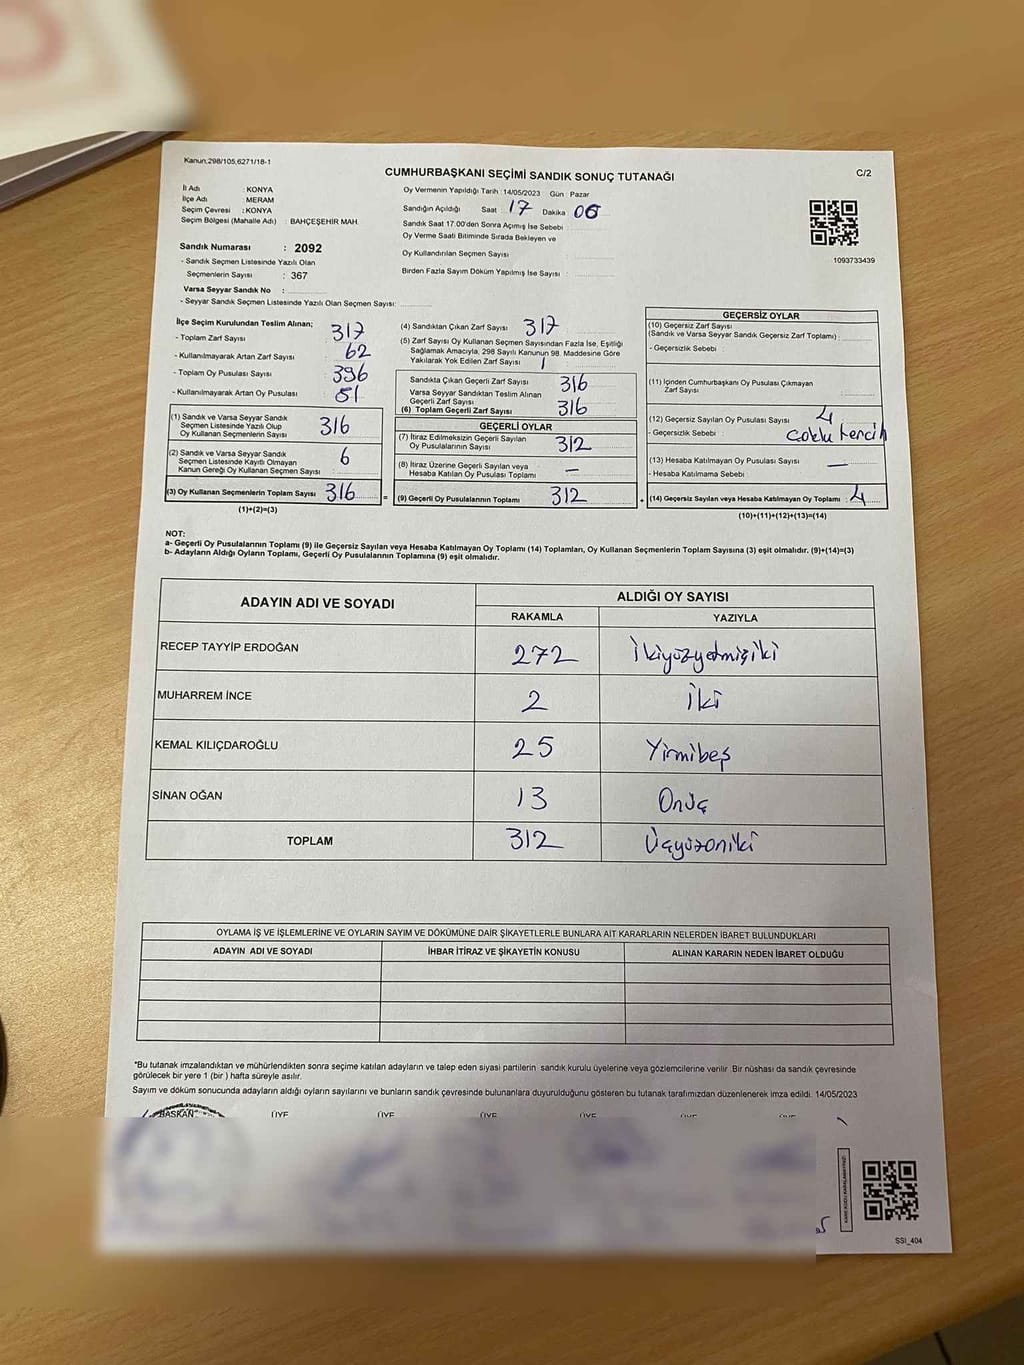 Kanun:298/105,6271/18-1
CUMHURBAŞKANI SEÇİMİ SANDIK SONUÇ TUTANAĞI
C/2
İl Adı : KONYA
İlçe Adı : MERAM
Seçim Çevresi : KONYA
Seçim Bölgesi (Mahalle Adı) : BAHÇEŞEHİR MAH.
Sandık Numarası : 2092
- Sandık Seçmen Listesinde Yazılı Olan
Seçmenlerin Sayısı : 367
Varsa Seyyar Sandık No :
- Seyyar Sandık Seçmen Listesinde Yazılı Olan Seçmen Sayısı:
Oy Vermenin Yapıldığı Tarih : 14/05/2023 Gün : Pazar
Sandığın Açıldığı Saat : 17 Dakika 06
Sandık Saat 17.00'den Sonra Açımış İse Sebebi
Oy Verme Saati Bitiminde Sırada Bekleyen ve
Oy Kullandırılan Seçmen Sayısı :
Birden Fazla Sayım Döküm Yapılmış İse Sayısı :
1093733439
İlçe Seçim Kurulundan Teslim Alınan;
- Toplam Zarf Sayısı : 317
- Kullanılmayarak Artan Zarf Sayısı : 62
- Toplam Oy Pusulası Sayısı : 396
- Kullanılmayarak Artan Oy Pusulası : 81
(1) Sandık ve Varsa Seyyar Sandık
Seçmen Listesinde Yazılı Olup
Oy Kullanan Seçmenlerin Sayısı 316
(2) Sandık ve Varsa Seyyar Sandık
Seçmen Listesinde Kayıtlı Olmayan
Kanun Gereği Oy Kullanan Seçmen Sayısı 6
(3) Oy Kullanan Seçmenlerin Toplam Sayısı 316 =
(1)+(2)=(3)
(4) Sandıktan Çıkan Zarf Sayısı : 317
(5) Zarf Sayısı Oy Kullanan Seçmen Sayısından Fazla İse, Eşitliği
Sağlamak Amacıyla, 298 Sayılı Kanunun 98. Maddesine Göre
Yakılarak Yok Edilen Zarf Sayısı 1
Sandıkta Çıkan Geçerli Zarf Sayısı : 316
Varsa Seyyar Sandıktan Teslim Alınan
Geçerli Zarf Sayısı
(6) Toplam Geçerli Zarf Sayısı : 316
GEÇERLİ OYLAR
(7) İtiraz Edilmeksizin Geçerli Sayılan
Oy Pusulalarının Sayısı : 312
(8) İtiraz Üzerine Geçerli Sayılan veya
Hesaba Katılan Oy Pusulası Toplamı : —
(9) Geçerli Oy Pusulalarının Toplamı : 312 +
GEÇERSİZ OYLAR
(10) Geçersiz Zarf Sayısı
(Sandık ve Varsa Seyyar Sandık Geçersiz Zarf Toplamı) :
- Geçersizlik Sebebi :
(11) İçinden Cumhurbaşkanı Oy Pusulası Çıkmayan
Zarf Sayısı
(12) Geçersiz Sayılan Oy Pusulası Sayısı 4
- Geçersizlik Sebebi : Çoklu tercih
(13) Hesaba Katılmayan Oy Pusulası Sayısı —
- Hesaba Katılmama Sebebi
(14) Geçersiz Sayılan veya Hesaba Katılmayan Oy Toplamı : 4
(10)+(11)+(12)+(13)=(14)
NOT:
a- Geçerli Oy Pusulalarının Toplamı (9) ile Geçersiz Sayılan veya Hesaba Katılmayan Oy Toplamı (14) Toplamları, Oy Kullanan Seçmenlerin Toplam Sayısına (3) eşit olmalıdır. (9)+(14)=(3)
b- Adayların Aldığı Oyların Toplamı, Geçerli Oy Pusulalarının Toplamına (9) eşit olmalıdır.
ADAYIN ADI VE SOYADI
ALDIĞI OY SAYISI
RAKAMLA YAZIYLA
RECEP TAYYİP ERDOĞAN 272 İkiyüzyetmişiki
MUHARREM İNCE 2 İki
KEMAL KILIÇDAROĞLU 25 Yirmibeş
SİNAN OĞAN 13 Onüç
TOPLAM 312 Üçyüzoniki
OYLAMA İŞ VE İŞLEMLERİNE VE OYLARIN SAYIM VE DÖKÜMÜNE DAİR ŞİKAYETLERLE BUNLARA AİT KARARLARIN NELERDEN İBARET BULUNDUKLARI
ADAYIN ADI VE SOYADI İHBAR İTİRAZ VE ŞİKAYETİN KONUSU ALINAN KARARIN NEDEN İBARET OLDUĞU
*Bu tutanak imzalandıktan ve mühürlendikten sonra seçime katılan adayların ve talep eden siyasi partilerin sandık kurulu üyelerine veya gözlemcilerine verilir .Bir nüshası da sandık çevresinde
görülecek bir yere 1 (bir ) hafta süreyle asılır.
Sayım ve döküm sonucunda adayların aldığı oyların sayılarını ve bunların sandık çevresinde bulunanlara duyurulduğunu gösteren bu tutanak tarafımızdan düzenlenerek imza edildi. 14/05/2023
BAŞKAN ÜYE ÜYE ÜYE ÜYE ÜYE ÜYE
SSI_404